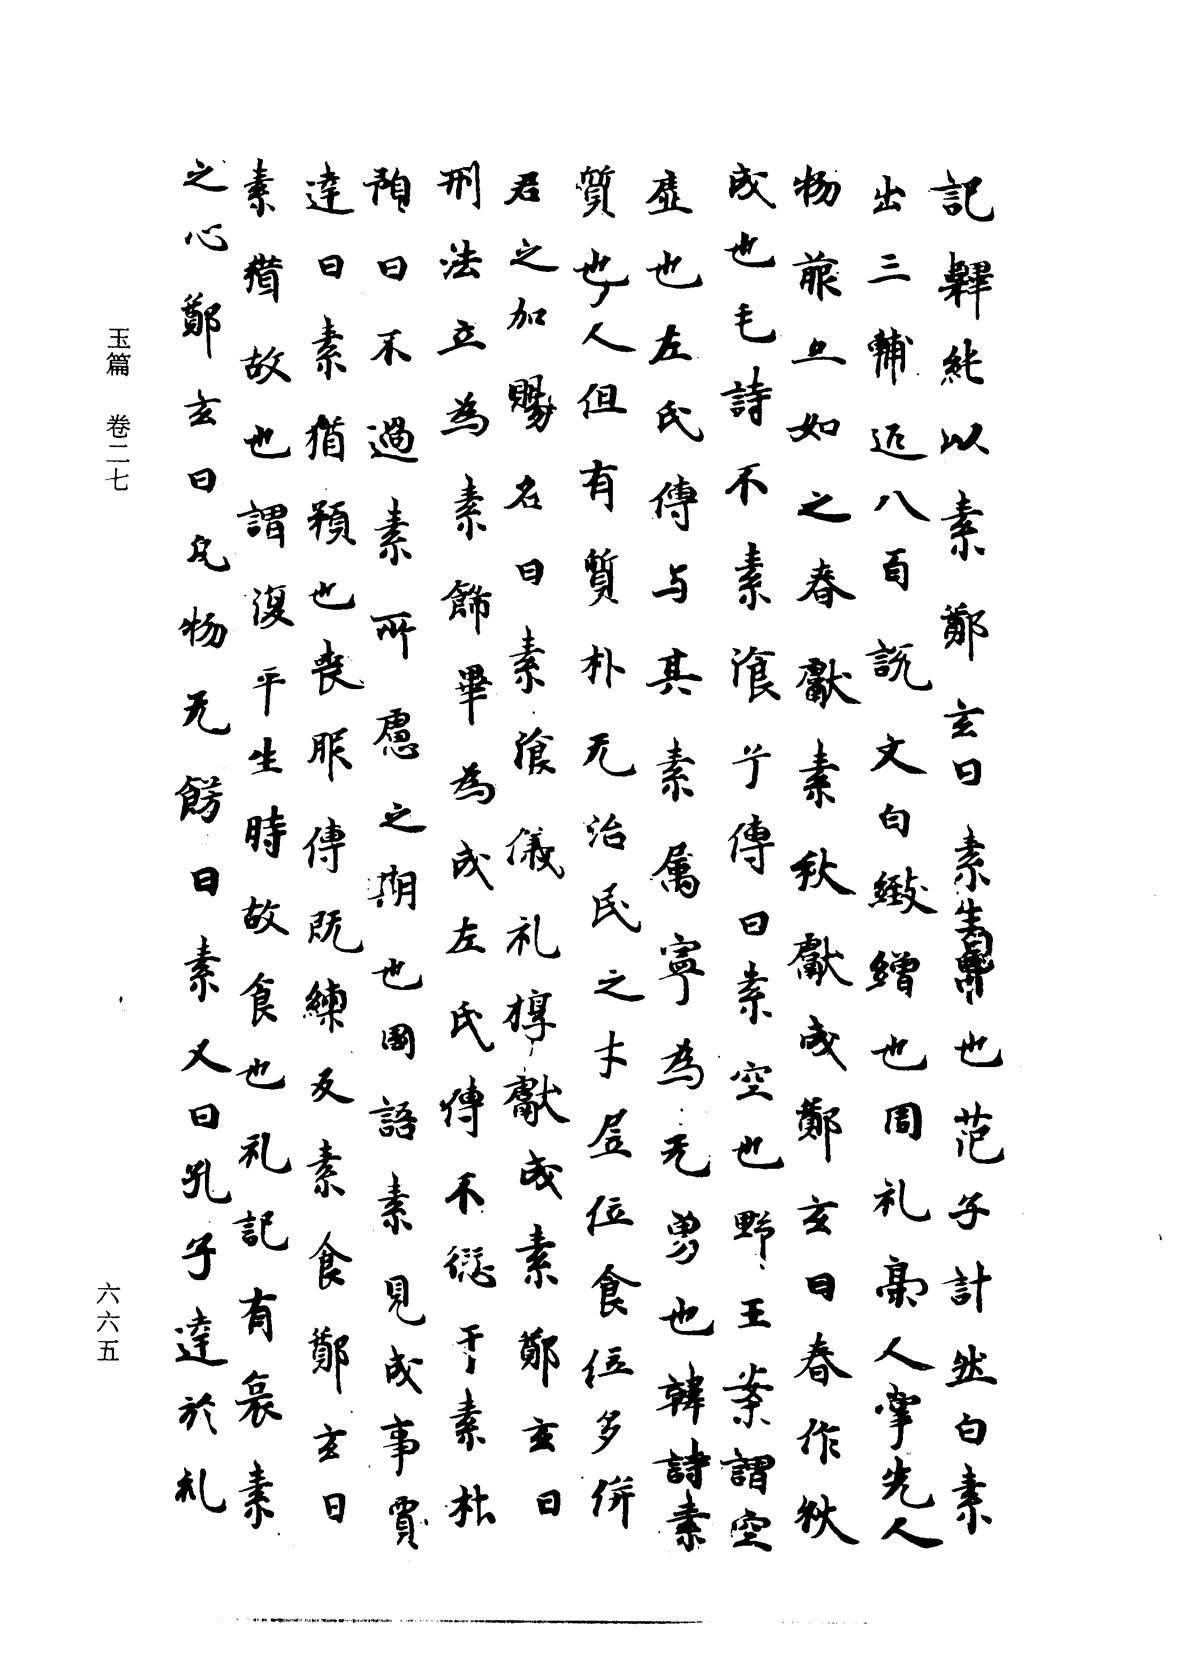 記韠純以素鄭玄曰素生帛也范子計然白素
出三輔返八百説文白緻繒也周礼稾人掌先人
物蕆之如之春獻素秋獻成鄭玄曰春作秋
成也毛詩不素飡兮傳曰素空也野王案謂空
虛也左氏傳与其素厲寧為无勇也韓詩素
質也人但有質朴无治民之才居位食位多併
君之加賜名曰素飡儀礼椁獻成素鄭玄曰
刑法立為素飾畢為成左氏傳不愆于素杜
預曰不過素所慮之期也國語素見成事賈
逵曰素猶預也喪服傳既練反素食鄭玄曰
素猶故也謂復平生時故食也礼記有哀素
之心鄭玄曰凡物无餝曰素又曰孔子達於礼
玉篇 卷二七
六六五